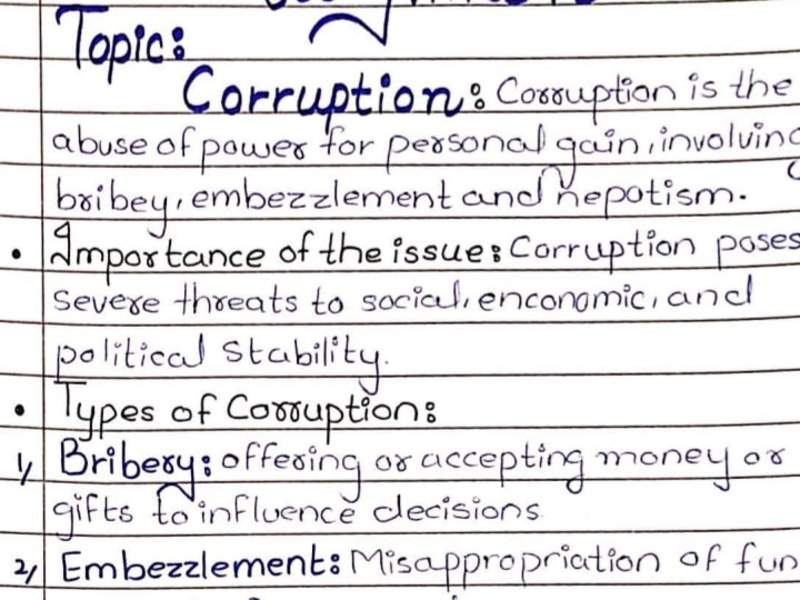 Topic:
Corruption: Corruption is the
abuse of power for personal gain, involving
bribey, embezzlement and nepotism.
• Importance of the issue: Corruption poses
severe threats to social, enconomic, and
political stability.
• Types of Corruption:
1) Bribery: offering or accepting money or
gifts to influence decisions
2) Embezzlement: Misappropriation of fun